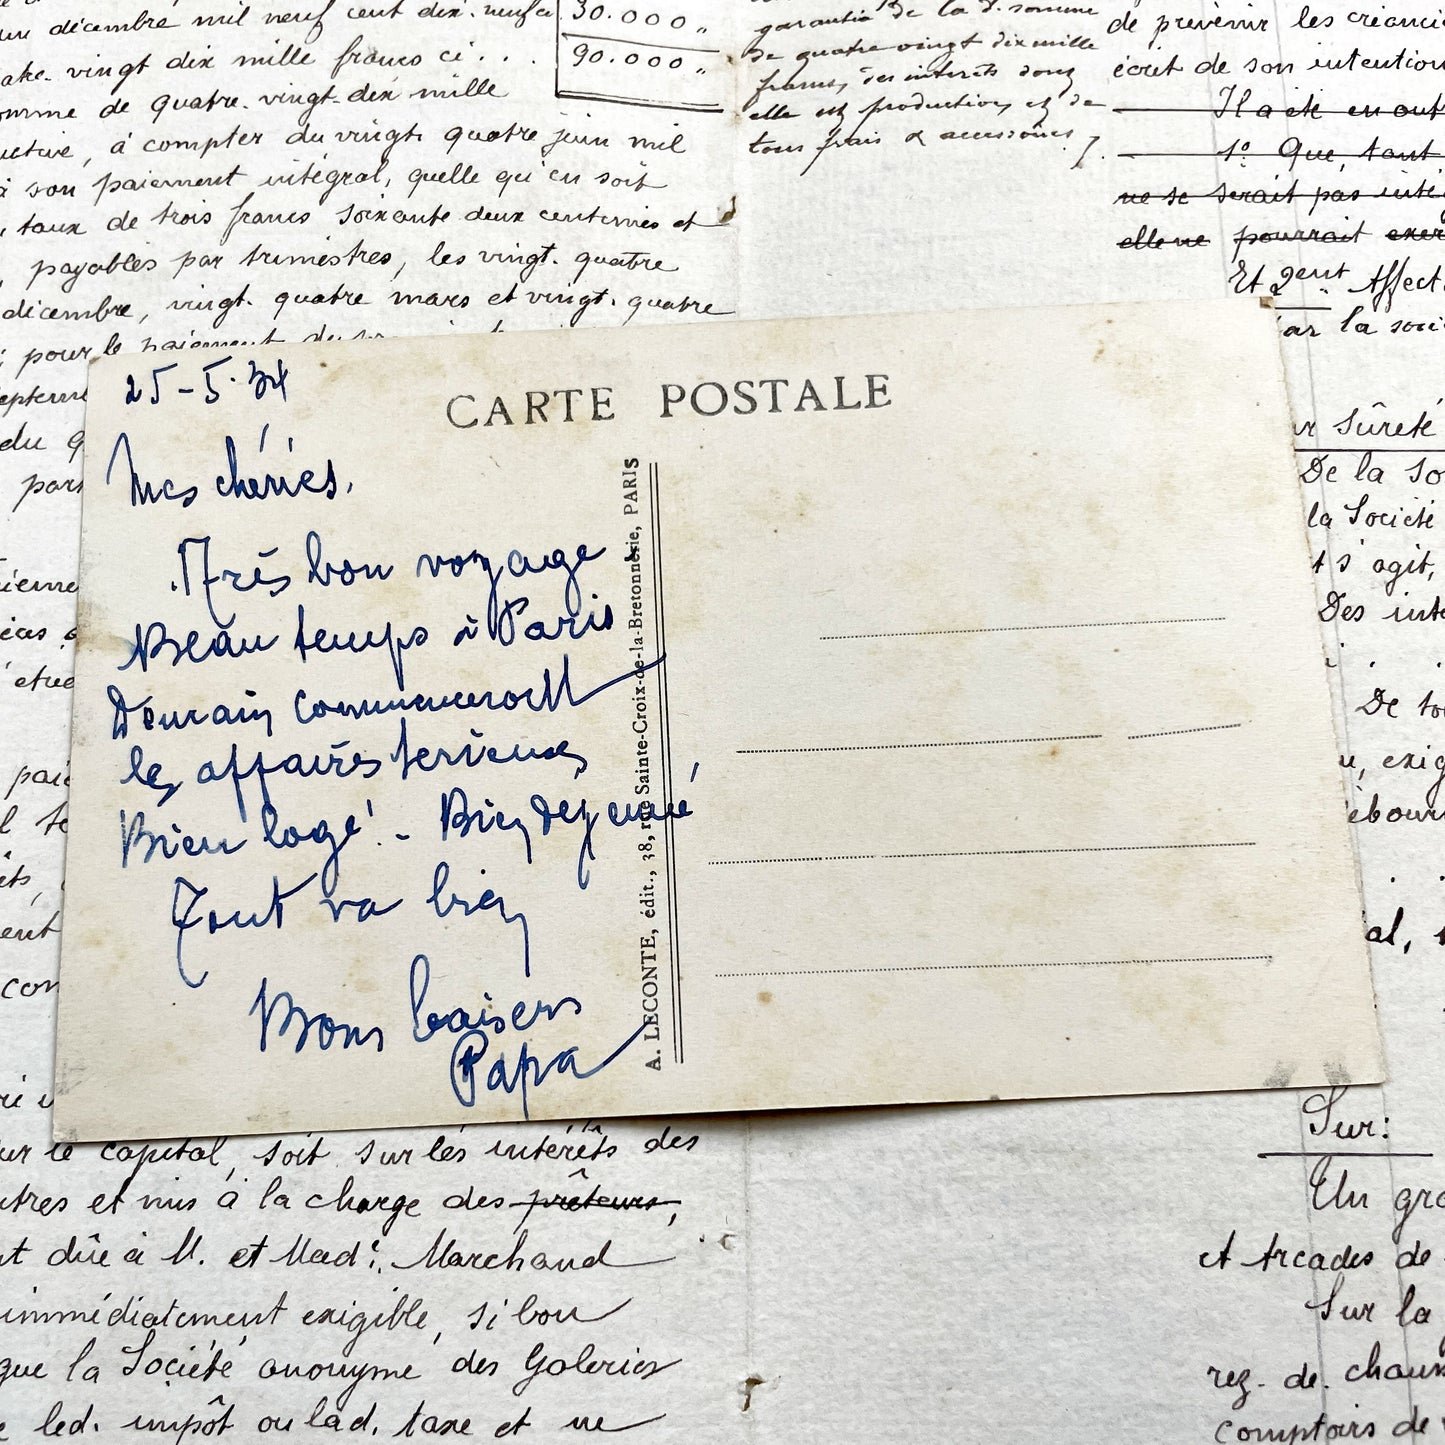 un décembre mil neuf cent dix-neuf
vingt dix mille francs ci . . .
de quatre-vingt-dix mille
, à compter du vingt quatre juin mil
à son paiement intégral, quelle qu'en soit
taux de trois francs soixante deux centimes et
, payables par trimestres, les vingt-quatre
décembre, vingt-quatre mars et vingt-quatre
; pour le paiement
du
30.000 „
90.000 „
garantie de la d. somme
de quatre vingt dix mille
francs, des intérêts dont
elle est productive, et de
tous frais & accessoires /.
de prévenir les
écrit de son intention
Il a été en out
1° Que, tant
ne se serait pas
elle ne pourrait
Et 2ent Affect
la soci
sûreté
De la So
la Société
s'agit,
Des int
De
CARTE POSTALE
25-5-34
Mes chéries,
Très bon voyage
Beau temps à Paris
Demain commenceront
les affaires serieuses
Bien logé! - Bien déjeuné
Tout va bien
Bons baisers
Papa
A. LECONTE, édit., 38, rue Sainte-Croix-de-la-Bretonnerie, PARIS
le capital, soit sur les intérêts des
et mis à la charge des prêteurs,
dûe à M. et Mad. Marchand
immédiatement exigible, si bon
que la Société anonyme des Galeries
led. impôt ou lad. taxe et ne
Sur:
Un gr
et Arcades de
Sur la
rez-de-chaus
comptoirs de